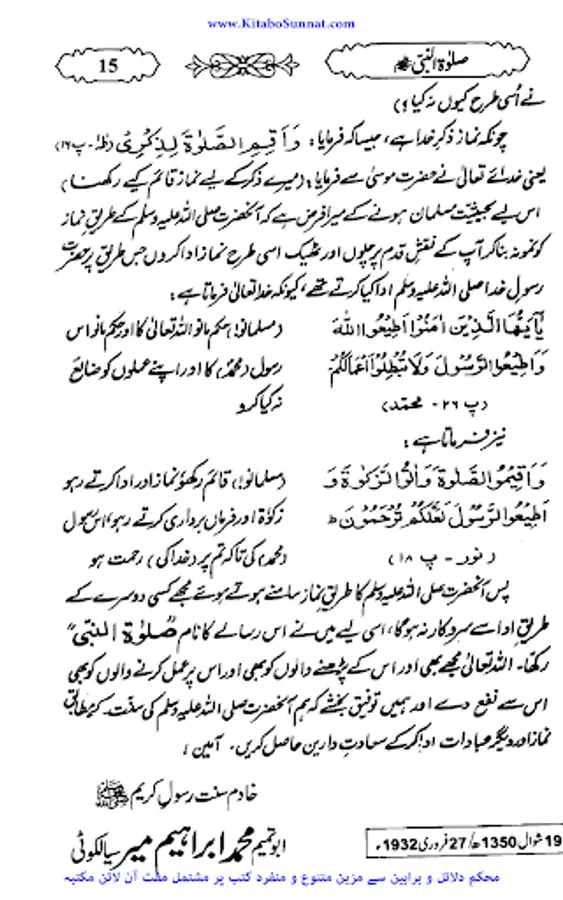 www.KitaboSunnat.com
صلوٰۃ النبی ﷺ
15
نے اُسی طرح کیوں نہ کیا؟)
چونکہ نماز ذکرِ خدا ہے، جیسا کہ فرمایا: وَاَقِيْمِ الصَّلٰوةَ لِذِكْرِىْ (طٰہٰ۔ پ ۱۶)
یعنی خدائے تعالیٰ نے حضرت موسیٰ سے فرمایا: (میرے ذکر کے لیے نماز قائم کیے رکھنا)
اس لیے بحیثیت مسلمان ہونے کے میرا فرض ہے کہ آنحضرت صلی اللہ علیہ وسلم کے طریقِ نماز
کو نمونہ بنا کر آپ کے نقشِ قدم پر چلوں اور ٹھیک اسی طرح نماز ادا کروں جس طریق پر حضرت
رسولِ خدا صلی اللہ علیہ وسلم ادا کیا کرتے تھے، کیونکہ خدا تعالیٰ فرماتا ہے:
يٰۤاَيُّهَا الَّذِيْنَ اٰمَنُوْا اَطِيْعُوا اللّٰهَ (مسلمانو!) حکم مانو اللہ تعالیٰ کا اور حکم مانو اس
وَاَطِيْعُوا الرَّسُوْلَ وَلَا تُبْطِلُوْا اَعْمَالَكُمْ رسول (محمدؐ) کا اور اپنے عملوں کو ضائع
(پ ۲۶ - محمد) نہ کیا کرو
نیز فرماتا ہے:
وَاَقِيْمُوا الصَّلٰوةَ وَاٰتُوا الزَّكٰوةَ وَ (مسلمانو!) قائم رکھو نماز اور ادا کرتے رہو
اَطِيْعُوا الرَّسُوْلَ لَعَلَّكُمْ تُرْحَمُوْنَ ط زکوٰۃ اور فرماں برداری کرتے رہو اس رسول
(نور - پ ۱۸) (محمدؐ) کی تاکہ تم پر (خدا کی) رحمت ہو
پس آنحضرت صلی اللہ علیہ وسلم کا طریقِ نماز سامنے ہوتے ہوئے مجھے کسی دوسرے کے
طریقِ ادا سے سروکار نہ ہوگا، اسی لیے میں نے اس رسالے کا نام "صلوٰۃ النبی"
رکھا۔ اللہ تعالیٰ مجھے بھی اور اس کے پڑھنے والوں کو بھی اور اس پر عمل کرنے والوں کو بھی
اس سے نفع دے اور ہمیں توفیق بخشے کہ ہم آنحضرت صلی اللہ علیہ وسلم کی سنّت کے مطابق
نماز اور دیگر عبادات ادا کر کے سعادتِ دارین حاصل کریں۔ آمین!
خادم سنت رسولِ کریم ﷺ
ابو تمیم محمد ابراہیم میر سیالکوٹی
19 شوال 1350ھ/ 27 فروری 1932ء
محکم دلائل و براہین سے مزین متنوع و منفرد کتب پر مشتمل مفت آن لائن مکتبہ